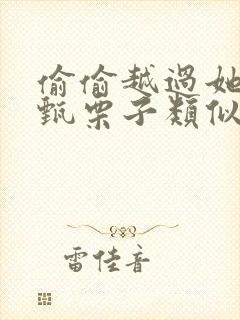 偷偷越過她
甄栗子類似
雷佳音